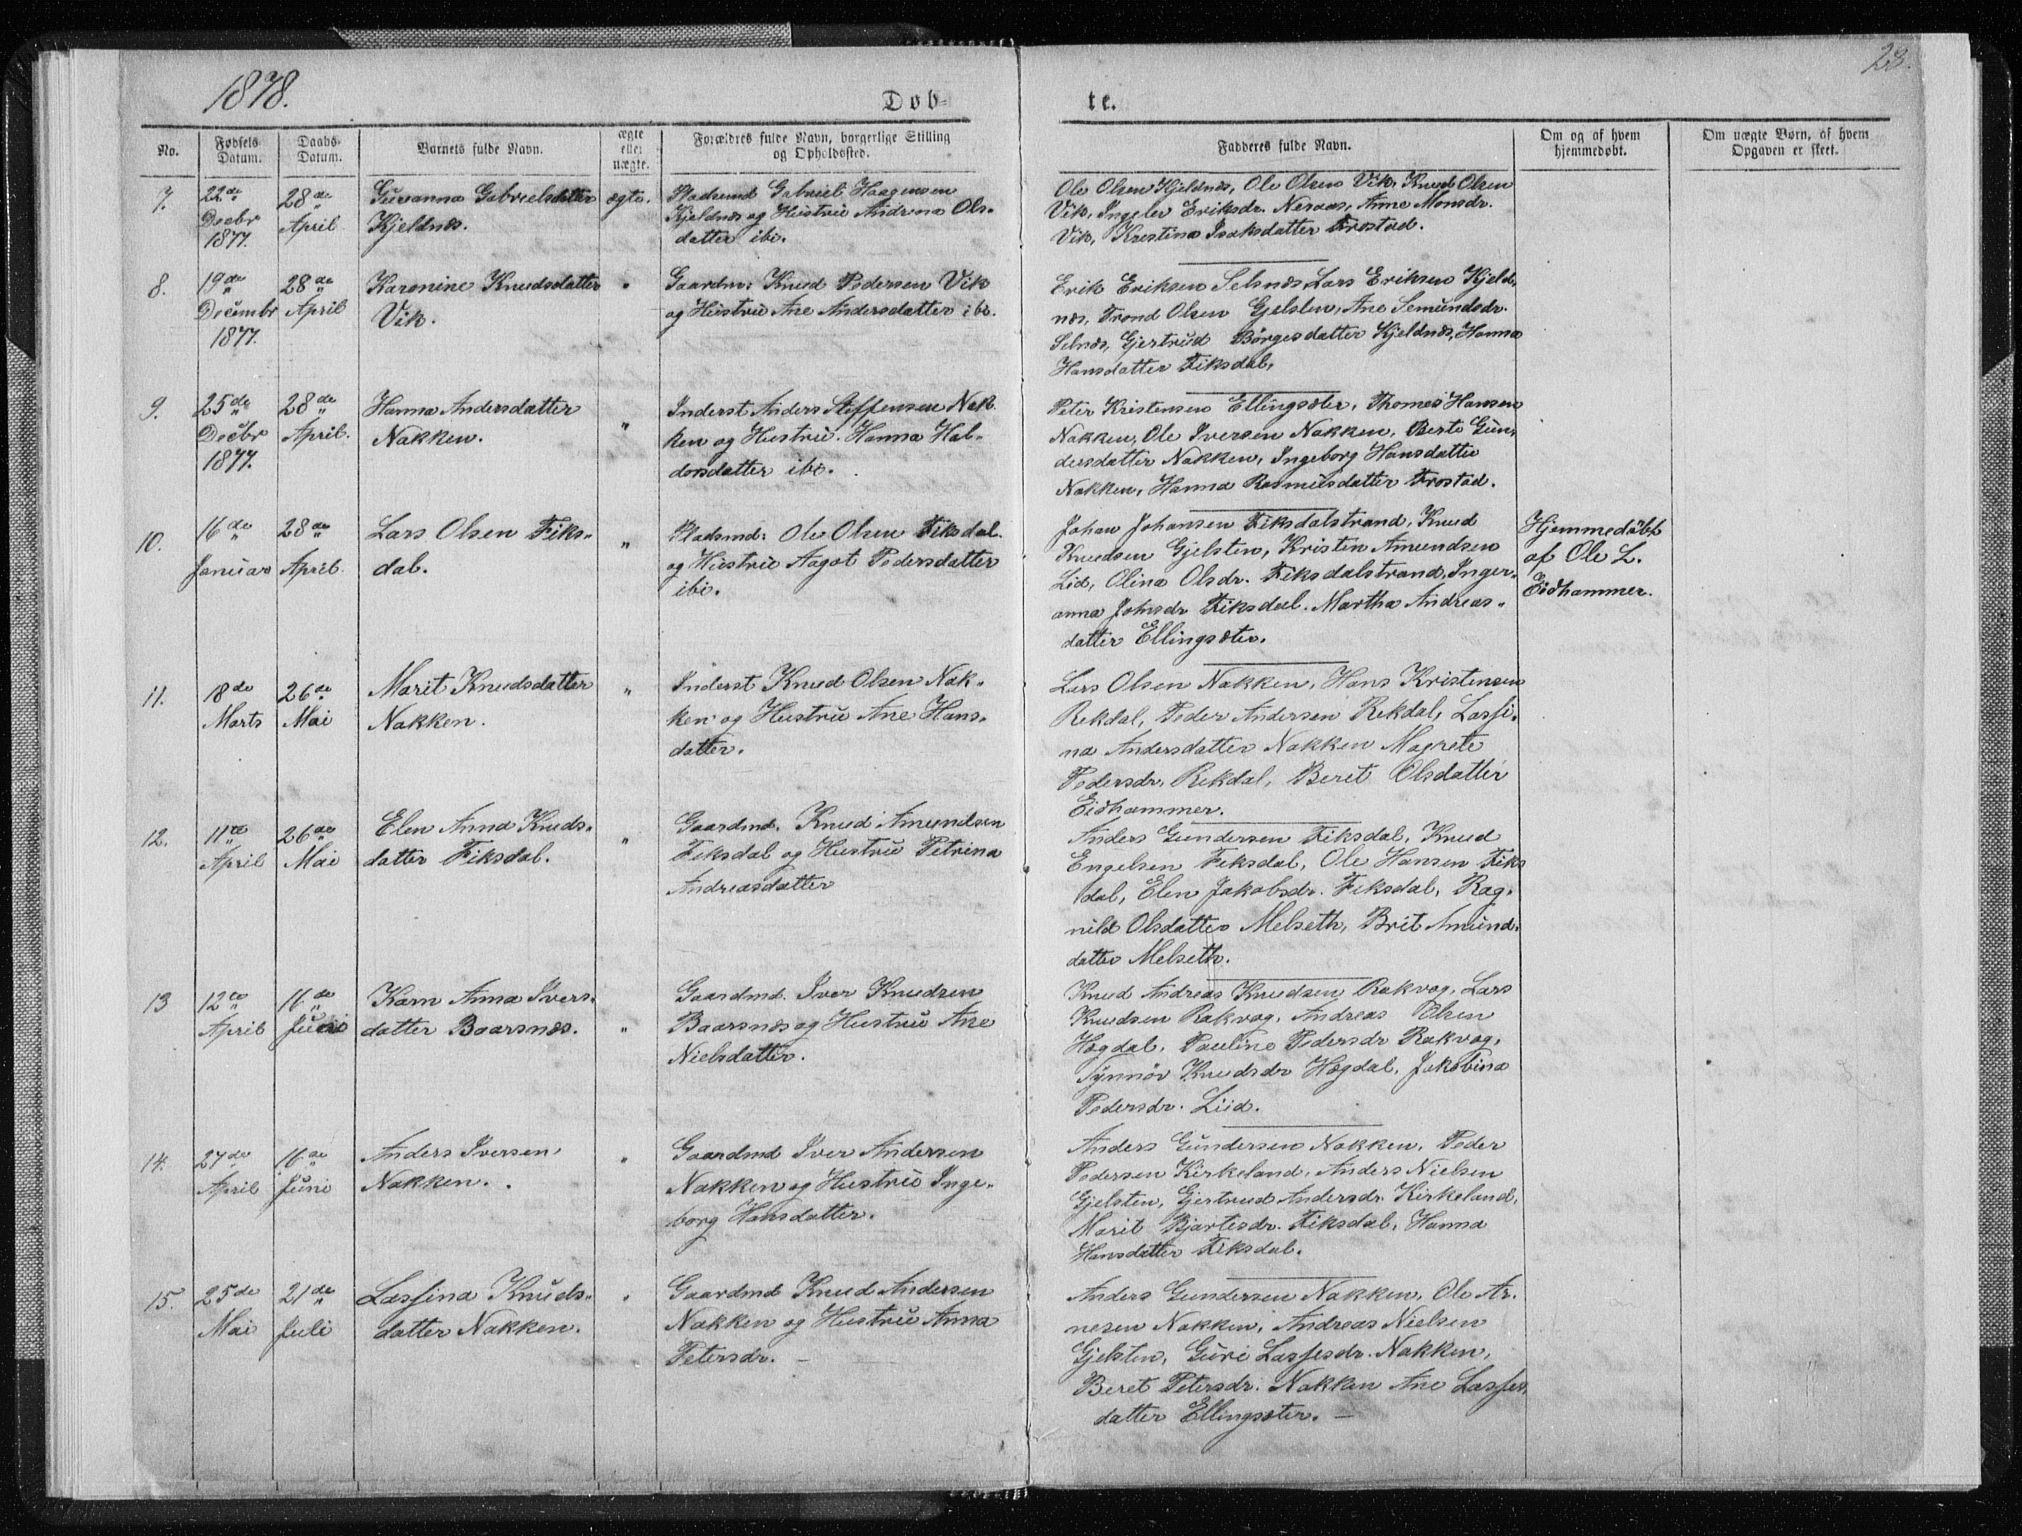 1878.
23.
Døb-
te.
No.
Fødsels Datum.
Daabs- Datum.
Barnets fulde Navn.
ægte eller uægte.
Forældres fulde Navn, borgerlige Stilling og Opholdssted.
Fadderes fulde Navn.
Om og af hvem hjemmedøbt.
Om uægte Børn, af hvem Opgaven er skeet.
7.
22de
Decbr
1877.
28de
April
Guvanna Gabrielsdatter
Kjeldnæs.
ægte.
Pladsmd Gabriel Haagensen
Kjeldnæs og Hustru Andrina Ols-
datter ibi.
Ole Olsen Kjeldnæs, Ole Olsen Vik, Knud Olsen
Vik, Ingeler Eriksdr. Neraas, Anne Monsdr.
Vik, Kristina Isaksdatter Frostad.
8.
19de
Decembr
1877.
28de
April
Karonine Knudsdatter
Vik.
"
Gaardm: Knud Pedersen Vik
og Hustru Ane Andersdatter ibi.
Erik Eriksen Selsnæs, Lars Eriksen Kjeld-
næs, Trond Olsen Gjelsten, Ane Semundsdr.
Selnæs, Gjertrud Børgesdatter Kjeldnæs, Hanna
Hansdatter Fiksdal.
9.
25de
Decbr
1877.
28de
April.
Hanna Andersdatter
Nakken.
"
Inderst Anders Steffensen Nak-
ken og Hustru Hanna Hal-
dorsdatter ibi.
Peter Kristensen Ellingsæter, Thomes Hansen
Nakken, Ole Iversen Nakken, Berte Gun-
dersdatter Nakken, Ingeborg Hansdatter
Nakken, Hanna Rasmusdatter Frostad.
10.
16de
Januar
28de
April.
Lars Olsen Fiks-
dal.
"
Pladsmd: Ole Olsen Fiksdal
og Hustru Aagot Pedersdatter
ibi.
Johan Johansen Fiksdalstrand, Knud
Knudsen Gjelsten, Kristen Amundsen
Lid, Olina Olsdr. Fiksdalstrand, Inger-
anna Johsdr Fiksdal. Martha Andreas-
datter Ellingsæter.
Hjemmedøbt
af Ole L.
Eidhammer.
11.
18de
Marts
26de
Mai
Marit Knudsdatter
Nakken.
"
Inderst Knud Olsen Nak-
ken og Hustru Ane Hans-
datter.
Lars Olsen Nakken, Hans Kristensen
Rekdal, Peder Andersen Rekdal, Lassi-
na Andersdatter Nakken Magrete
Pedersdr. Rekdal, Beret Olsdatter
Eidhammer.
12.
11te
April
26de
Mai
Elen Anna Knuds-
datter Fiksdal.
"
Gaardmd. Knud Amundsen
Fiksdal og Hustru Petrina
Andreasdatter
Anders Gundersen Fiksdal, Knud
Engelsen Fiksdal, Ole Hansen Fiks
dal, Elen Jakobsdr. Fiksdal, Rag-
nild Olsdatter Melseth, Brit Amund-
datter Melseth.
13
12te
April
16de
Juni
Karn Anna Ivers-
datter Baarsnæs.
"
Gaardmd. Iver Knudsen
Baarsnæs og Hustru Ane
Nielsdatter.
Knud Andreas Knudsen Rakvog, Lars
Knudsen Rakvog, Andreas Olsen
Høgdal, Pauline Pedersdr Rakvog,
Synnøv Knudsdr Høgdal, Jakobina
Pedersdr. Liid.
14.
27de
April
16de
Juni
Anders Iversen
Nakken.
"
Gaardmd Iver Andersen
Nakken og Hustru Inge-
borg Hansdatter.
Anders Gundersen Nakken, Peder
Pedersen Kirkeland, Anders Nielsen
Gjelsten, Gjertrud Andersdr. Kirkeland,
Marit Bjartesdr. Fiksdal, Hanna
Hansdatter Fiksdal.
15.
25de
Mai
21de
Juli
Lassina Knuds-
datter Nakken.
"
Gaardmd Knud Andersen
Nakken og Hustru Anna
Petersdr.
Anders Gundersen Nakken, Ole Ar-
nesen Nakken, Andreas Nielsen
Gjelsten, Guri Lassesdr. Nakken,
Beret Petersdr. Nakken Ane Lasses
datter Ellingsæter.